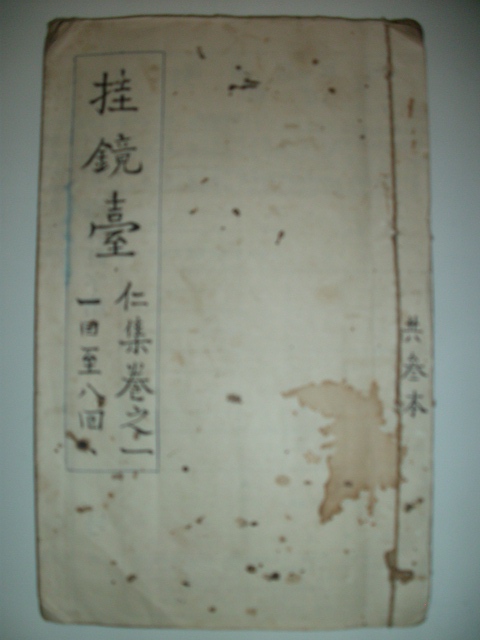 挂鏡臺
仁集卷之一
一回至八回
共叁本